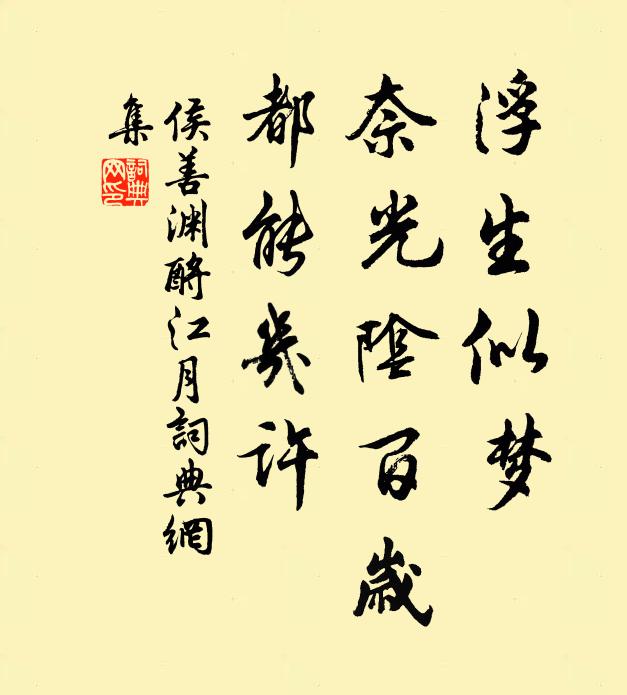 浮生似梦
奈光陰百歲
都能幾許
侯善渊酹江月詞典網
集
詞典
网印